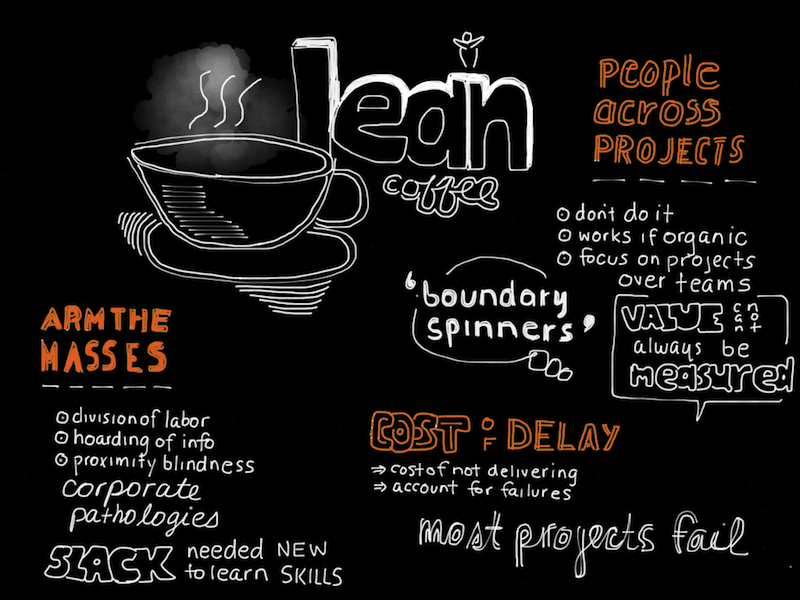 lean
coffee
PEOPLE
ACROSS
PROJECTS
don't do it
works if organic
focus on projects
over teams
'boundary
spinners'
VALUE cannot
always be
measured
ARM THE
MASSES
division of labor
hoarding of info
proximity blindness
corporate
pathologies
SLACK needed NEW
to learn SKILLS
COST OF DELAY
⇒ cost of not delivering
⇒ account for failures
most projects fail